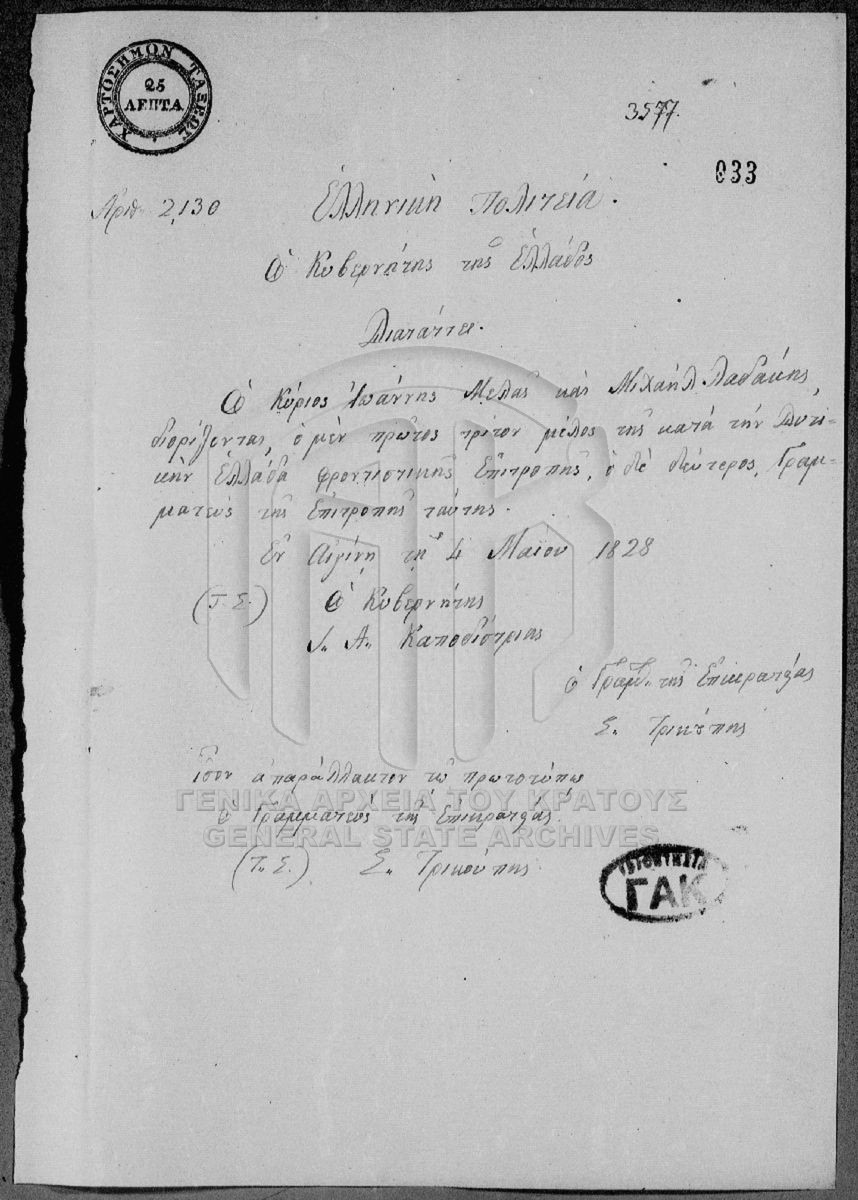 ΧΑΡΤΟΣΗΜΟΝ ΤΑΞΕΩΣ
25
ΛΕΠΤΑ
3577.
033
Ἀριθ. 2,130
Ἑλληνικὴ Πολιτεία.
Ὁ Κυβερνήτης τῆς Ἑλλάδος
Διατάττει.
Ὁ Κύριος Ἰωάννης Μελᾶς καὶ Μιχαὴλ Λαδάκης,
διορίζονται, ὁ μὲν πρῶτος τρίτον μέλος τῆς κατὰ τὴν Δυτι-
κὴν Ἑλλάδα φροντιστικῆς Ἐπιτροπῆς, ὁ δὲ δεύτερος, Γραμ-
ματεὺς τῆς Ἐπιτροπῆς ταύτης.
Ἐν Αἰγίνῃ τῇ 4 Μαΐου 1828
(Τ.Σ.) Ὁ Κυβερνήτης
Ι„ Α„ Καποδίστριας
ὁ Γραμ„ τῆς Ἐπικρατείας
Σ„ Τρικούπης
Ἴσον ἀπαράλλακτον τῷ πρωτοτύπῳ
Ὁ Γραμματεὺς τῆς Ἐπικρατείας.
(Τ„Σ.) Σ„ Τρικούπης
ΓΕΝΙΚΑ ΑΡΧΕΙΑ ΤΟΥ ΚΡΑΤΟΥΣ
GENERAL STATE ARCHIVES
ΓΑΚ